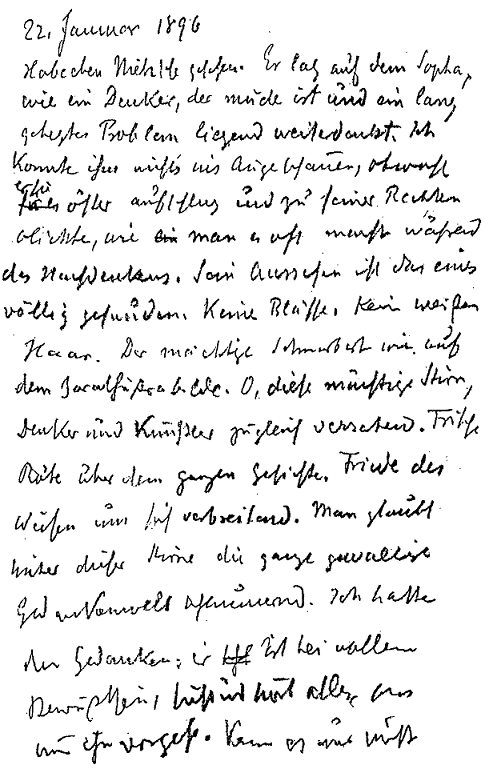 22. Januar 1896
Habe eben Nietzsche gesehen. Er lag auf dem Sopha,
wie ein Denker, der müde ist und ein lang
gehegtes Problem liegend weiterdenkt. Ich
konnte ihm nichts ins Auge schauen, obwohl
er sie öfter aufschlug und zu seiner Rechten
blickte, wie man es oft macht während
des Nachdenkens. Sein Aussehen ist das eines
völlig gesunden. Keine Blässe. Kein weißes
Haar. Der mächtige Schnurbart wie auf
dem Zarathustrabilde. O, diese mächtige Stirn,
Denker und Künstler zugleich verratend. Frische
Röte über dem ganzen Gesichte. Friede des
Weisen um sich verbreitend. Man glaubt
hinter dieser Stirne die ganze gewaltige
Gedankenwelt
Ich hatte
den Gedanken: er ist bei vollem
Bewußtsein, alles, was
um ihn vorgeht. Kann es nur nicht